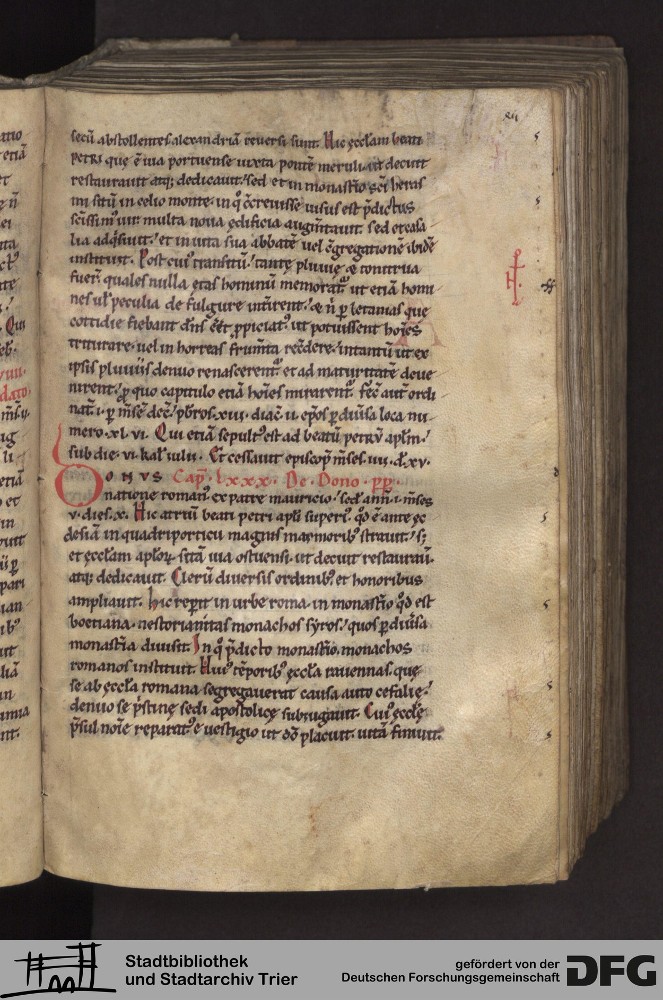 secū abstollentes alexandriā reversi sunt. Hic ecclam beati
petri que ē via portuense iuxta pontē meruli. ut decuit
restauravit atq; dedicavit. sed et in monastrio sci heras
mi sitū in celio monte. in q̊ c̄crevisse visus est p̄dictus
scissim' vir multa nova edificia augm̄tavit. sed et casa
lia adq̄sivit. et in vita sua abbatē vel c̄gregationē ibidē
instituit. Post cui' transitū. tante pluvie & tonitrua
fuer̄ quales nulla etas hominū memorat'. ut etiā homi
nes ul' peculia de fulgure int̄irent. & n̄ p̱ letamas que
cottidie fiebant dn̄s eēt p̱piciat'. ut potuissent hoīes
triturare. vel in horreis frum̄ta rec̄dere. intantū ut ex
ipsis pluviis denuo renascerent'. et ad maturitatē deve
nirent. p̱ quo capitulo etiā hoīes mirarent'. Fec̄ aut ordi
nat̄. i. p̱ m̄sē dec̄. pb̄ros. xiiii. diac̄. ii. ep̄os p̱ diūsa loca nu
mero. xl. vi. Qui etiā sepult' est ad beatū petrū aplm̄.
sub die. vi. kal' iulii. Et cessavit episcop' m̄ses. iiii. d. xv.
DONVS Cap̄. lxxx. De Dono. pp̄.
natione roman' ex patre mauricio. sed' ann̄. i. m̄ses
v. dies. x. Hic atriū beati petri apli superi'. q̊d ē ante ec
clesiā in quadriporticu magnis marmorib' stravit. s;
et ecclam aplor̄. sitā via ostiensi. ut decuit restauravi.
atq; dedicavit. Clerū diversis ordinib' et honoribus
ampliavit. Hic rep̱it in urbe roma. in monastrio q̊d est
boetiana. nestorianitas monachos syros. quos p̱ diūsa
monastria divisit. In q̊ p̄dicto monastrio. monachos
romanos instituit. Hui' tēporib' eccla ravennas. que
se ab eccla romana segregaverat causa auto cefalie.
denuo se p̄stine sedi apostolice subiugavit. Cui' eccle
p̄sul noīe reparat' e vestigio ut dō placuit. vitā finivit.
Stadtbibliothek
und Stadtarchiv Trier
gefördert von der
Deutschen Forschungsgemeinschaft
DFG